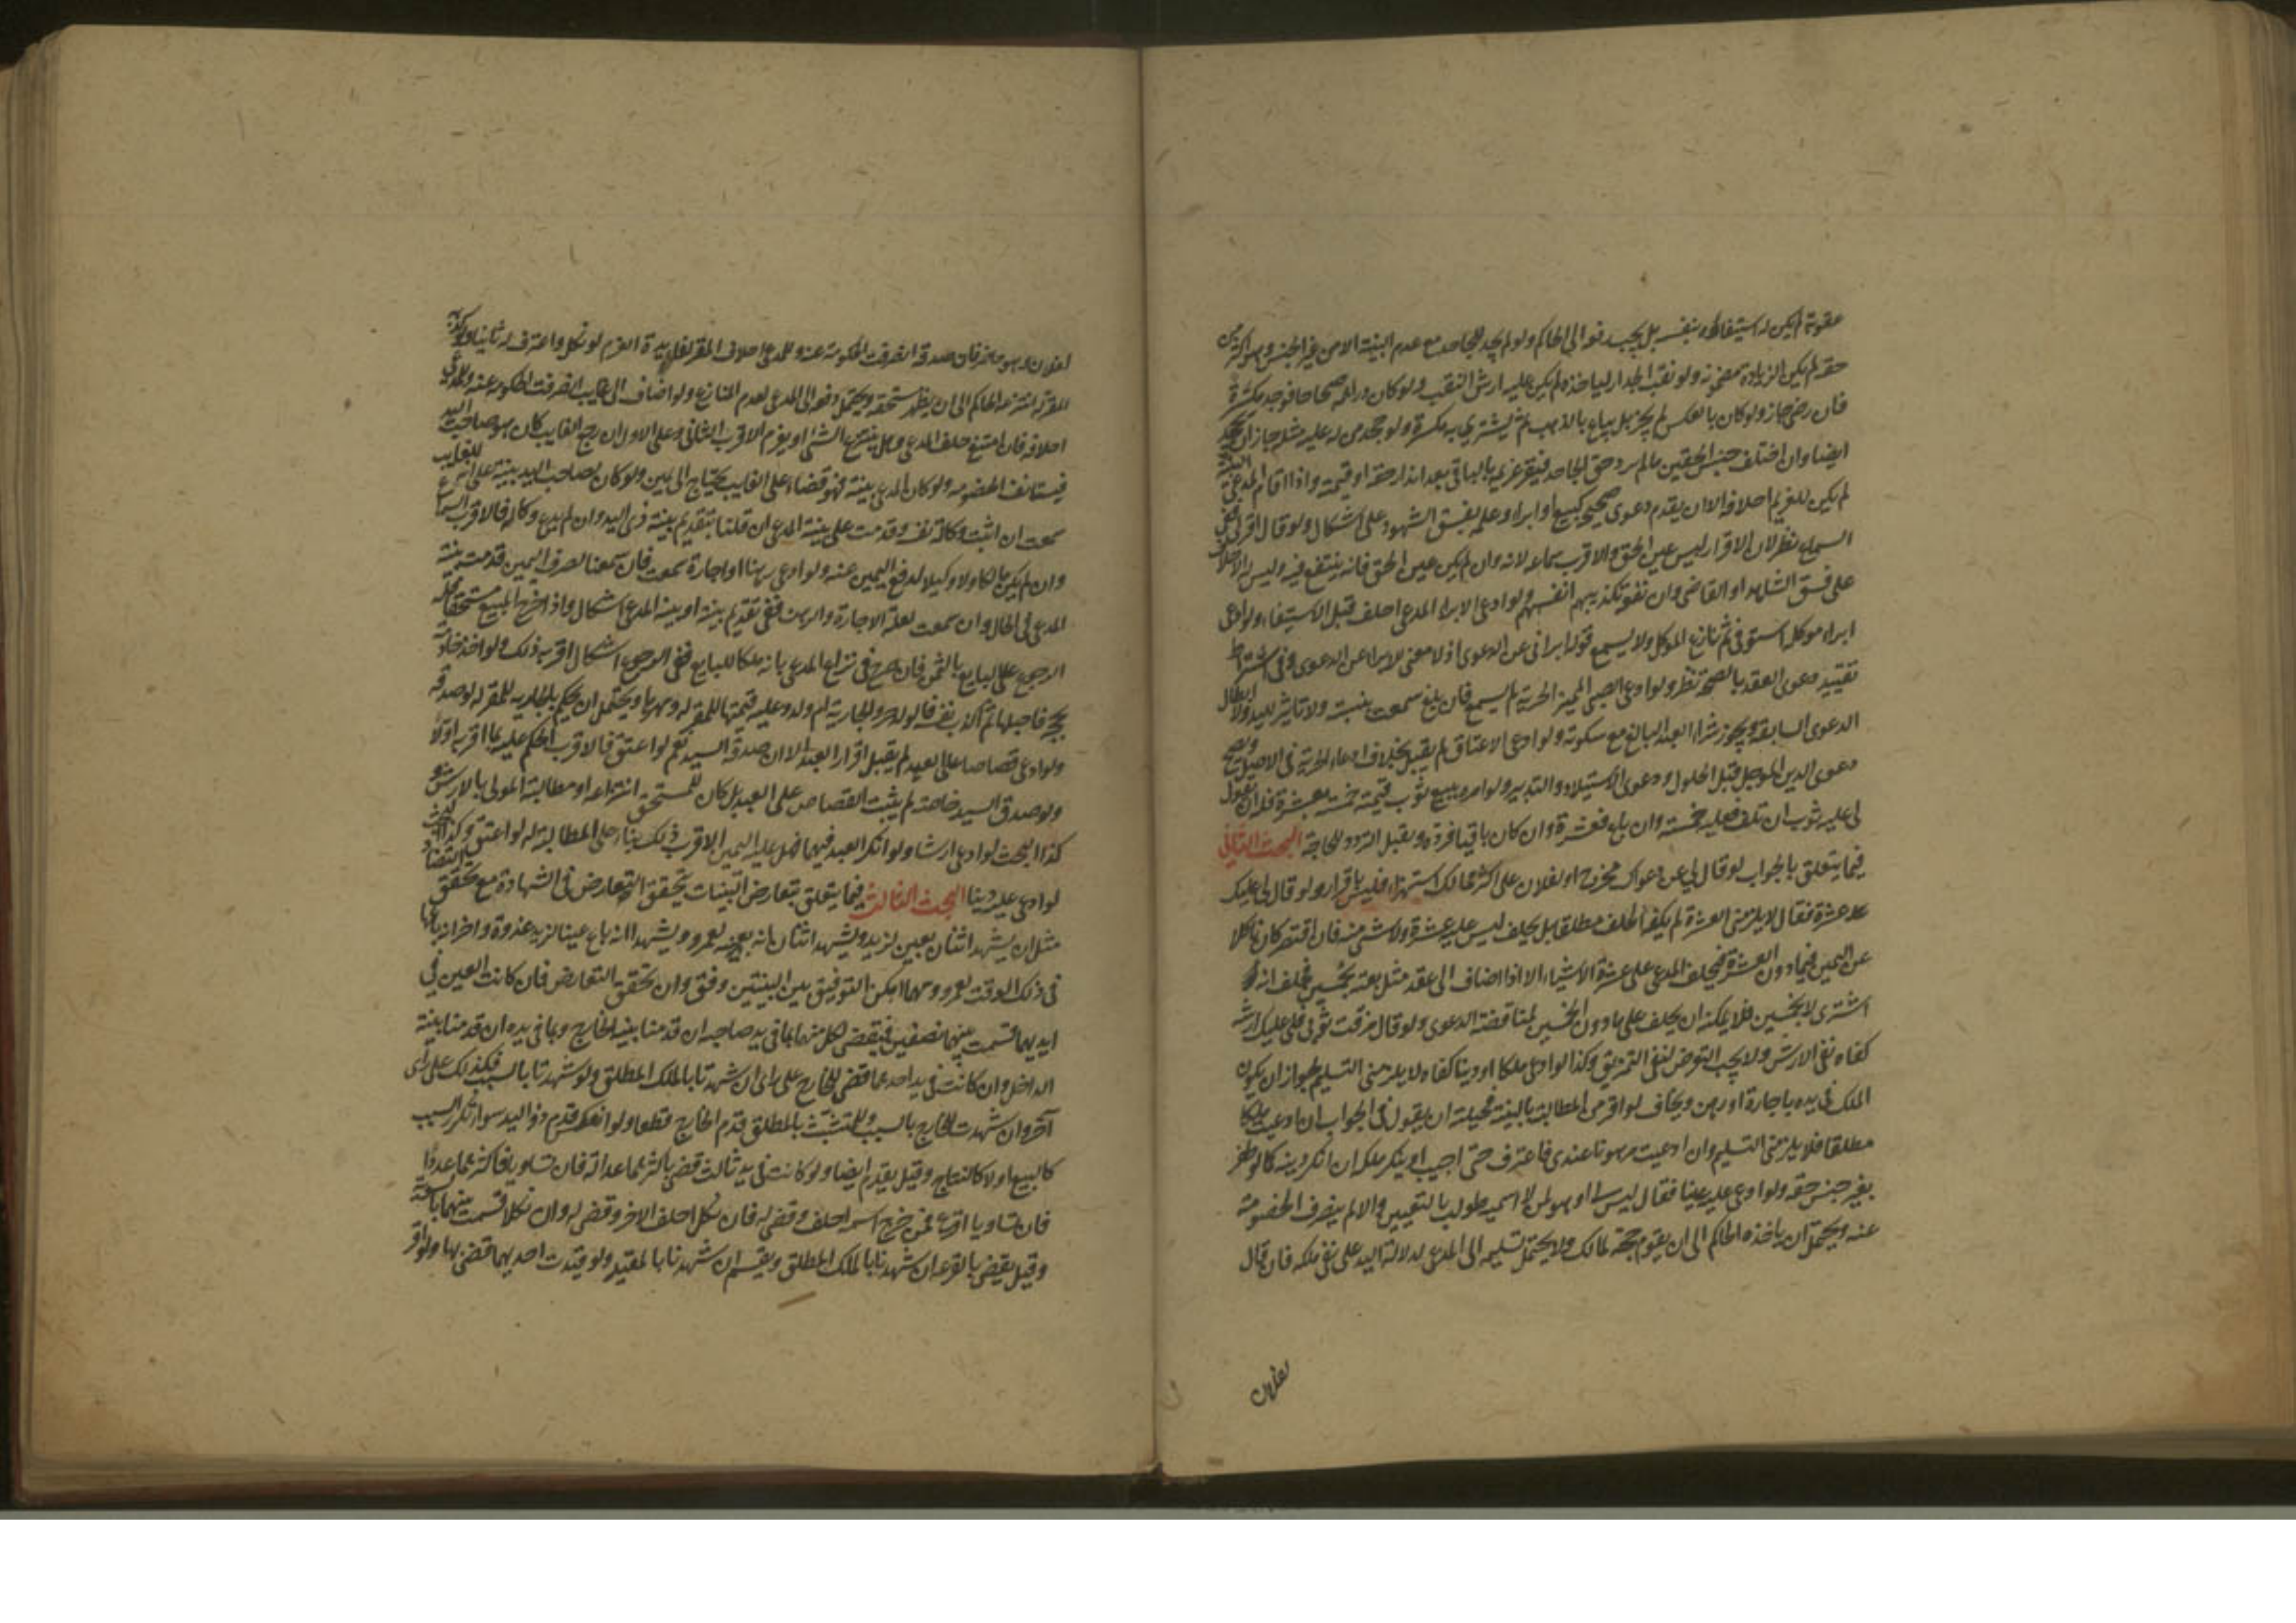 عقوبة لم يكن له استيفاؤه بنفسه بل يجب رفعه الى الحاكم ولو لم يجد الجاحد مع عدم البينة الا من غير الجنس وهو اكثر من
حقه لم يكن الزيادة مضمونة ولو نقب الجدار لياخذه لم يكن عليه ارش النقب ولو كان دراهمه صحاحا فوجد مكسرة
فان رضي جاز ولو كان بالعكس لم يجز بل يباع بالذهب ثم يشتري به مكسرة ولو جحد من له عليه مثله جاز ان يجحد
ايضا وان اختلف جنس الحقين مالم يرد حق الجاحد فيقر غريمه بالباقي بعد اندار حقه او قيمته واذا اقام المدعي البينة
لم يكن للغريم احلافه الا ان يقدم دعوى صحيحة كبيع او ابراء وعلمه بفسق الشهود على اشكال ولو قال اقر لي ففي
السماع نظر لان الاقرار ليس عين الحق والاقرب سماعه لانه وان لم يكن عين الحق فانه ينتفع فيه وليس له الاحلاف
على فسق الشاهد او القاضي وان نفع تكذيبهم انفسهم ولو ادعى الابراء المدعي احلف قبل الاستيفاء ولو ادعى
ابراء موكله استوفى ثم نازع الموكل ولا يسمع قوله ابراني عن الدعوى اذ لا معنى لابراء عن الدعوى وفي اشتراط
تقييد دعوى العقد بالصحة نظر ولو ادعى الصبي المميز الحرية لم يسمع فان بلغ سمعت بينته ولا تاثير لليد ولا ابطال
الدعوى السابقة ويجوز شراء العبد البالغ مع سكوته ولو ادعى الاعتاق لم يقبل بخلاف ادعاء الحرية في الاصل ويصح
دعوى الدين المؤجل قبل الحلول ودعوى الاستيلاد والتدبير ولو امره ببيع ثوب قيمته خمسة بعشرة فله ان يقول
لي عليه ثوب ان تلف فعليه خمسة وان باعه فعشرة وان كان باقيا فرده ويقبل التردد للحاجة البحث الثاني
فيما يتعلق بالجواب لو قال لي عن دعواك مخرج او لفلان على اكثر مما لك استهزاء فليس باقرار ولو قال لي عليك
عشرة فقال لا يلزمني العشرة لم يكفه الحلف مطلقا بل يحلف ليس عليه عشرة ولا شيء منه فان اقتصر كان ناكلا
عن اليمين فيما دون العشرة فيحلف المدعي على عشرة الا شيئا الا اذا اضاف الى عقد مثل بعته بخمسين فحلف انه ما
اشترى لا بخمسين فلا يمكنه ان يحلف على ما دون الخمسين لمناقضة الدعوى ولو قال مزقت ثوبي فلي عليك ارشه
كفاه نفي الارش ولا يجب التعرض لنفي التمزيق وكذا لو ادعى ملكا او دينا كفاه لا يلزمني التسليم لجواز ان يكون
الملك في يده باجارة او رهن ويخاف لو اقر من المطالبة بالبينة فحيلته ان يقول في الجواب ان ادعيت ملكا
مطلقا فلا يلزمني التسليم وان ادعيت مرهونا عندي فاعترف حتى اجيب او ينكر ملكه ان انكر دينه كما لو ظفر
بغير جنس حقه ولو ادعى عليه عينا فقال ليس لي او هو لمن لا اسميه طولب بالتعيين والا لم ينصرف الخصومة
عنه ويحتمل ان ياخذه الحاكم الى ان يقوم حجة لمالك ولا يحتمل تسليمه الى المدعي لدلالة اليد على نفي ملكه فان قال
لفلان
لفلان وهو حاضر فان صدقه انصرفت الحكومة عنه وللمدعي احلاف المقر لفايدة الغرم لو نكل واعترف له ثانيا ولو كذبه
المقر له انتزعه الحاكم الى ان يظهر مستحقه ويحتمل دفعه الى المدعي لعدم المنازع ولو اضاف الى غايب انصرفت الحكومة عنه وللمدعي
احلافه فان امتنع حلف المدعي وهل ينتزع الشيء او يغرم الاقرب الثاني وعلى الاول ان رجع الغايب كان هو صاحب اليد
فيستانف الخصومة ولو كان للمدعي بينة فهو قضاء على الغايب يحتاج الى يمين ولو كان لصاحب اليد بينة على انه للغايب
سمعت ان اثبت وكالة نفسه وقدمت على بينة المدعي ان قلنا بتقديم بينة ذي اليد وان لم يدع وكالة فالاقرب السماع
وان لم يكن مالكا ولا وكيلا لدفع اليمين عنه ولو ادعى رهنا او اجارة سمعت فان سمعنا لصرف اليمين قدمت بينة
المدعي في الحال وان سمعت لعلقة الاجارة والرهن ففي تقديم بينته او بينة المدعي اشكال واذا خرج المبيع مستحقا فله
الرجوع على البايع بالثمن فان صرح في نزاع المدعي بانه ملكا للبايع ففي الرجوع اشكال اقربه ذلك ولو اخذ جارية
بحجة فاحبلها ثم اكذب نفسه فالولد حر والجارية ام ولد وعليه قيمتها للمقر له ومهرها ويحتمل ان يحكم بالجارية للمقر له لو صدقه
ولو ادعى قصاصا على العبد لم يقبل اقرار العبد الا ان صدقه السيد نعم لو اعتق فالاقرب الحكم عليه بما اقر به اولا
ولو صدق السيد خاصة لم يثبت القصاص على العبد بل كان للمستحق انتزاعه او مطالبة المولى بالارش
كذا البحث لو ادعى ارشا ولو انكر العبد فيهما فهل عليه اليمين الاقرب ذلك بناء على المطالبة له لو اعتق وكذا البحث
لو ادعى عليه دينا البحث الثالث فيما يتعلق بتعارض البينات يتحقق التعارض في الشهادة مع تحقق التضاد
مثل ان يشهد اثنان بعين لزيد ويشهد اثنان انه بعينه لعمرو ويشهدا انه باع عينا لزيد غدوة واخران بانه باعها
في ذلك الوقت لعمرو ومهما امكن التوفيق بين البينتين وفق وان تحقق التعارض فان كانت العين في
ايديهما قسمت بينهما نصفين فيقضى لكل منهما بما في يد صاحبه ان قدمنا بينة الخارج وبما في يده ان قدمنا بينة
الداخل وان كانت في يد احدهما قضي للخارج على راى ان شهدتا بالملك المطلق ولو شهدتا بالسبب فكذلك على راى
اخر وان شهدت للخارج بالسبب وللمتشبث بالمطلق قدم الخارج قطعا ولو انعكس قدم ذو اليد سواء تكرر السبب
كالبيع او لا كالنتاج وقيل يقدم ايضا ولو كانت في يد ثالث قضي باكثرهما عدالة فان تساويا فاكثرهما عددا
فان تساويا اقرع فمن خرج اسمه احلف وقضي له فان نكل احلف الاخر وقضي له وان نكلا قسمت بينهما بالسوية
وقيل يقضى بالقرعة ان شهدتا بالملك المطلق ويقسم ان شهدتا بالمقيد ولو قيدت احديهما قضي بها ولو اقر